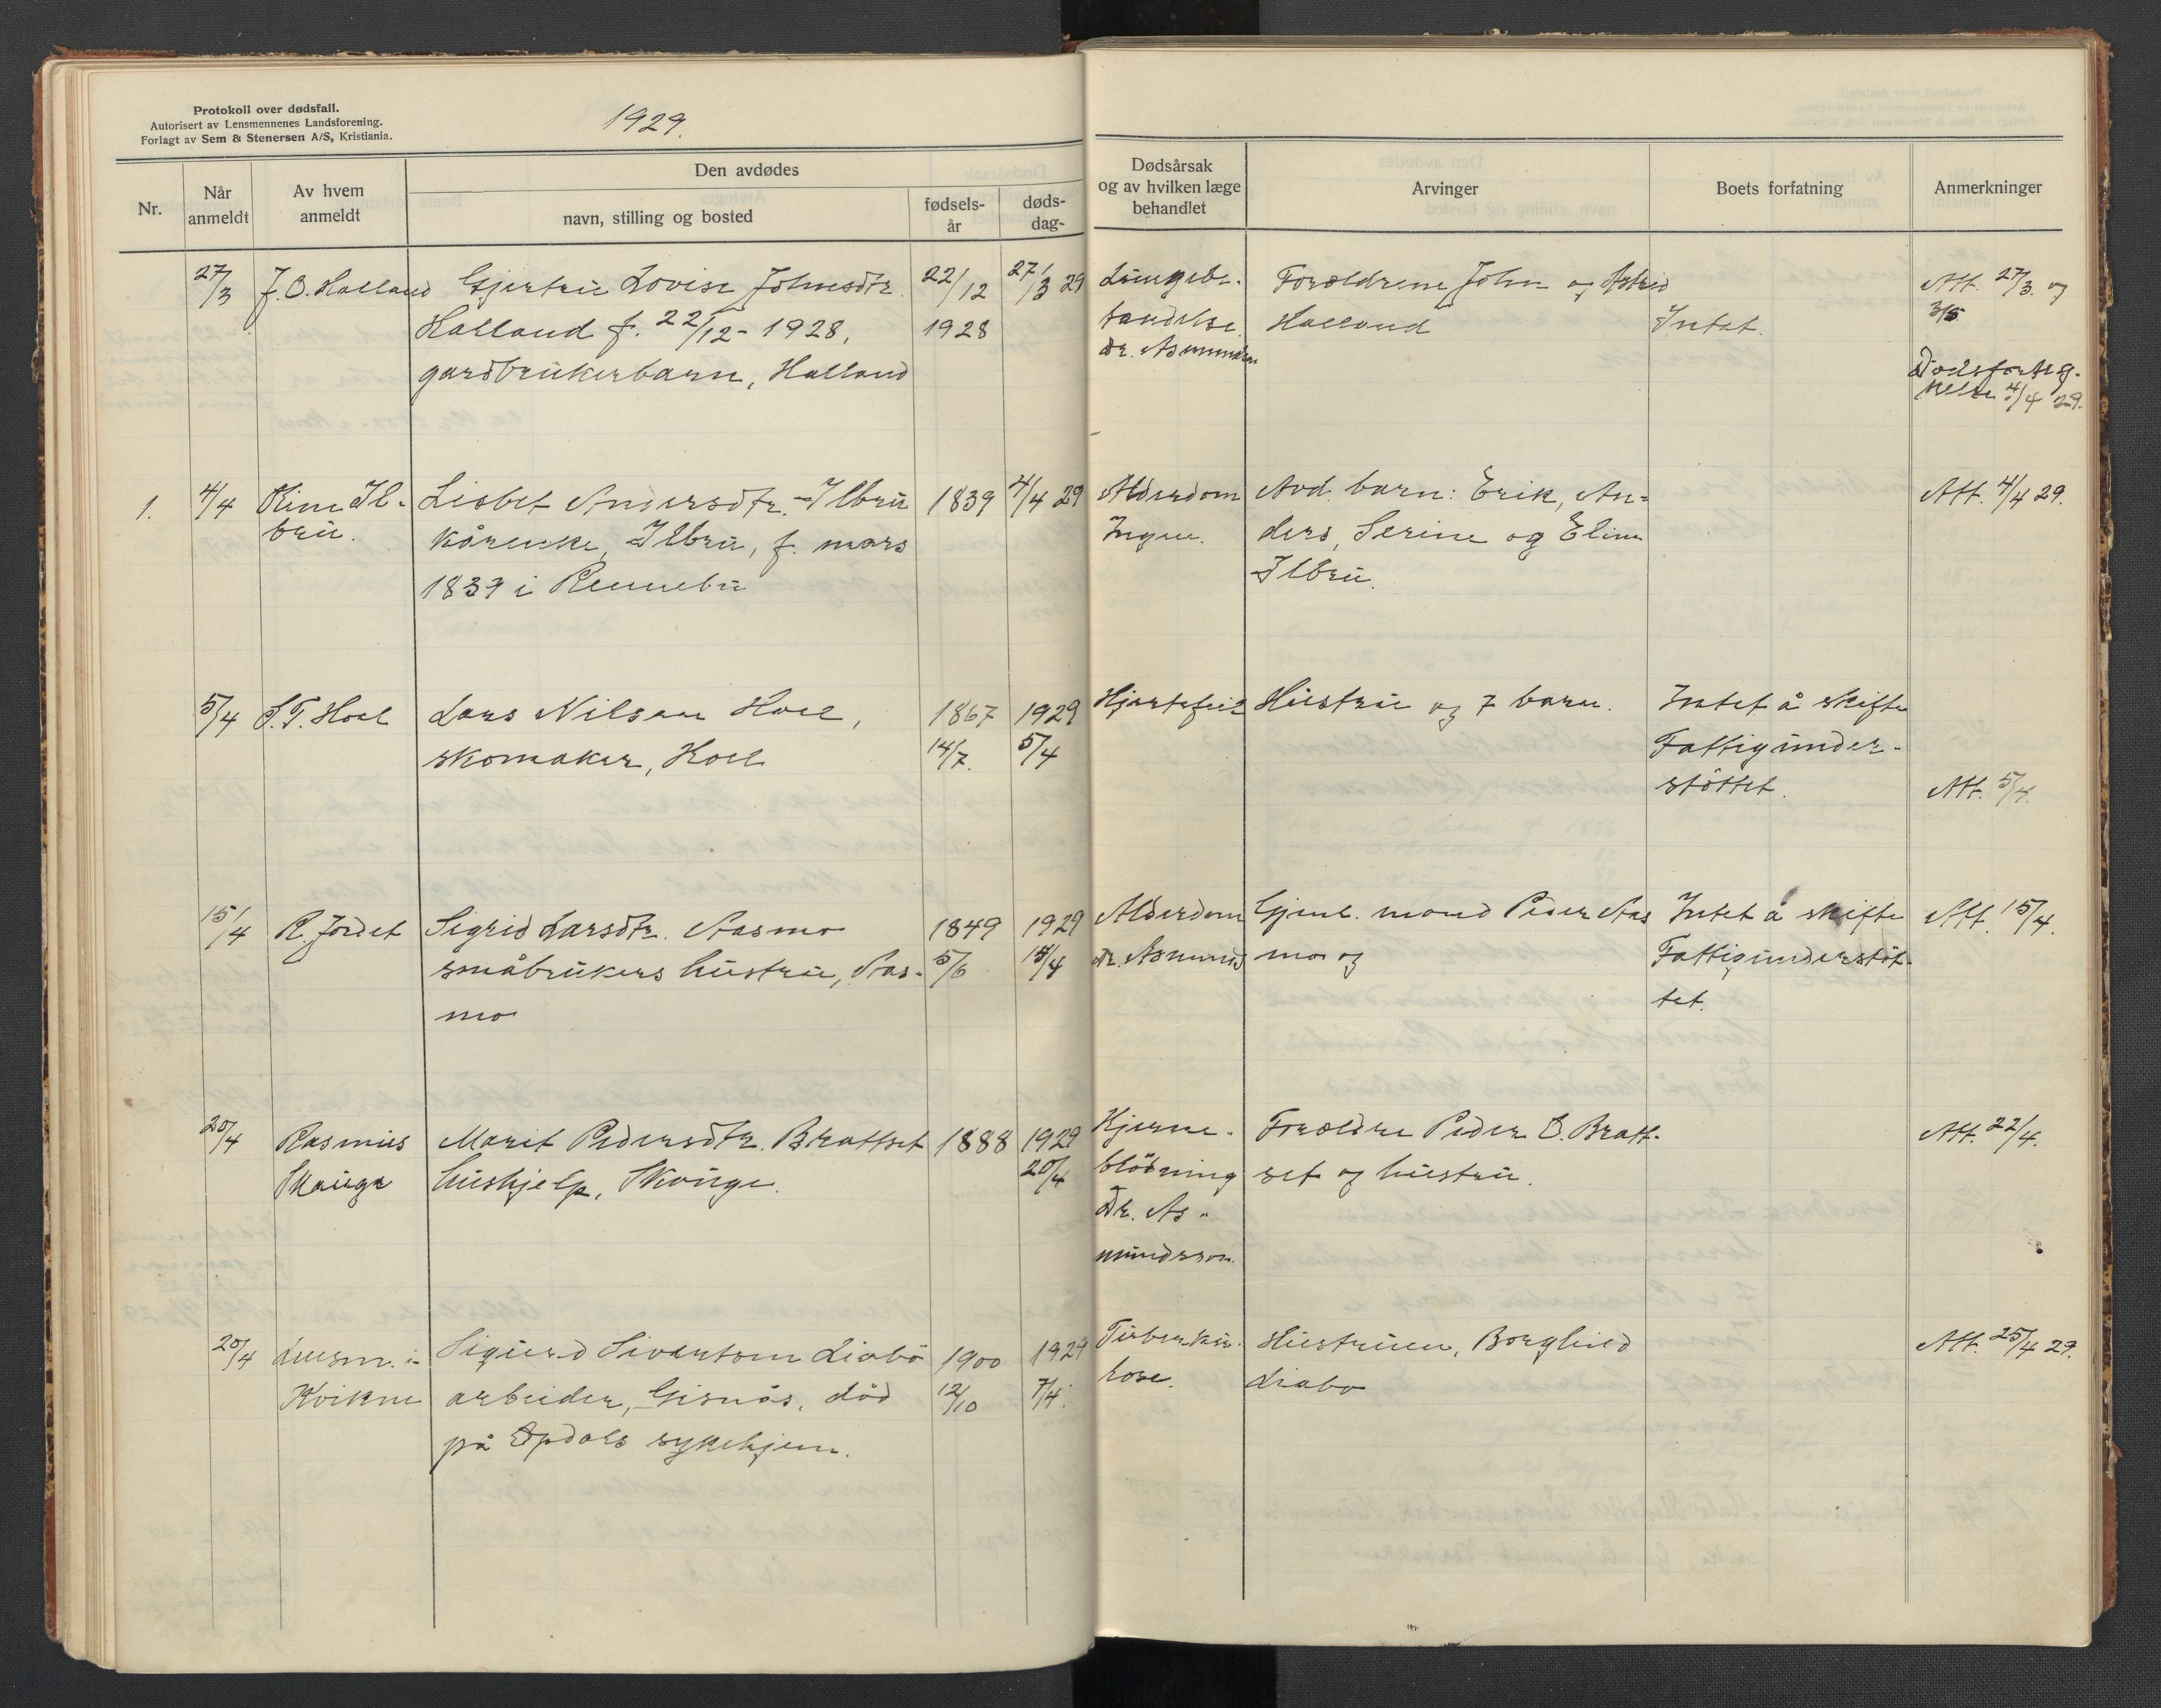 Protokoll over dødsfall.
Autorisert av Lensmennenes Landsforening.
Forlagt av Sem & Stenersen A/S, Kristiania.
1929.
Nr.
Når anmeldt
Av hvem anmeldt
Den avdødes
navn, stilling og bosted
fødsels-år
døds-dag
Dødsårsak
og av hvilken læge
behandlet
Arvinger
Boets forfatning
Anmerkninger
27/3 J. O. Halland Gjertru Lovise Johnsdtr. 22/12 27/3 29 Lungebe- Forældrene John og Astrid Att. 27/3. og
Halland f. 22/12 - 1928, 1928 tændelse Halland Intet. 3/5
gardbrukerbarn, Halland Dr. Asmundsson Dødsfortegnelse 4/4 29.
1. 4/4 Kine Il- Lisbet Andersdtr. Ilbru 1839 4/4 29 Alderdom Avd. barn: Erik, An- Att. 4/4 29.
bru. kårenke, Ilbru, f. mars Ingen. ders, Serine og Eline
1839 i Rennebu Ilbru.
5/4 S. T. Hoel Lars Nilsen Hoel, 1867 1929 Hjertefeil Hustru og 7 barn. Intet å skifte
skomaker, Hoel 14/7. 5/4 Fattigunder-
støttet. Att. 5/4.
15/4 R. Jordet Sigrid Larsdtr. Aasmo 1849 1929 Alderdom Gjenl. mand Peder Aas Intet å skifte Att. 15/4.
småbrukers hustru, Aas- 5/6 14/4 Dr. Asmunds mo og Fattigunderstøt-
mo tet.
20/4 Rasmus Marit Pedersdtr. Brattset 1888 1929 Hjerne- Forældre Peder O. Bratt- Att. 22/4.
Skauge hushjelp, Skauge. 20/4 blødning set og hustru.
Dr. As-
mundsson.
20/4 Lensm. i Sigurd Sivertsen Liabø 1900 1929 Tuberku- Hustruen, Borghild Att. 25/4 29.
Kvikne arbeider, Gisnås, død 12/10 7/4. lose. Liabø
på Opdals sykehjem.